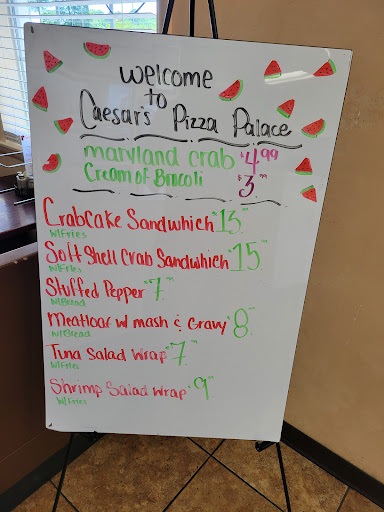 welcome
to
Caesar's Pizza Palace
maryland crab $4.99
Cream of Brocoli $3.99
Crabcake Sandwhich $13
w/Fries
Soft Shell Crab Sandwhich $15
w/Fries
Stuffed Pepper $7
w/Bread
Meatloaf w mash & Gravy $8
w/Bread
Tuna Salad Wrap $7
w/Fries
Shrimp Salad Wrap $9
w/Fries